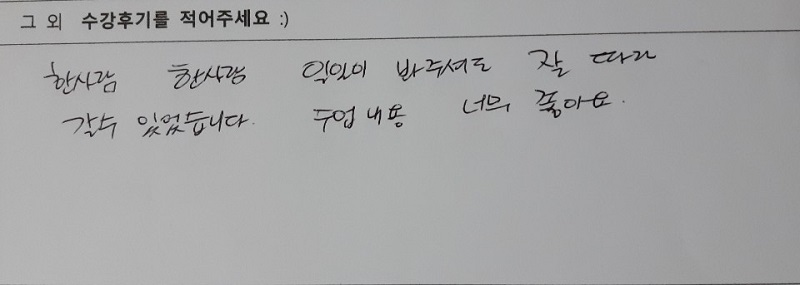 그 외 수강후기를 적어주세요 :)
한사람 한사람 일일이 봐주셔도 잘 따라
갈수 있었습니다. 수업 내용 너무 좋아요.